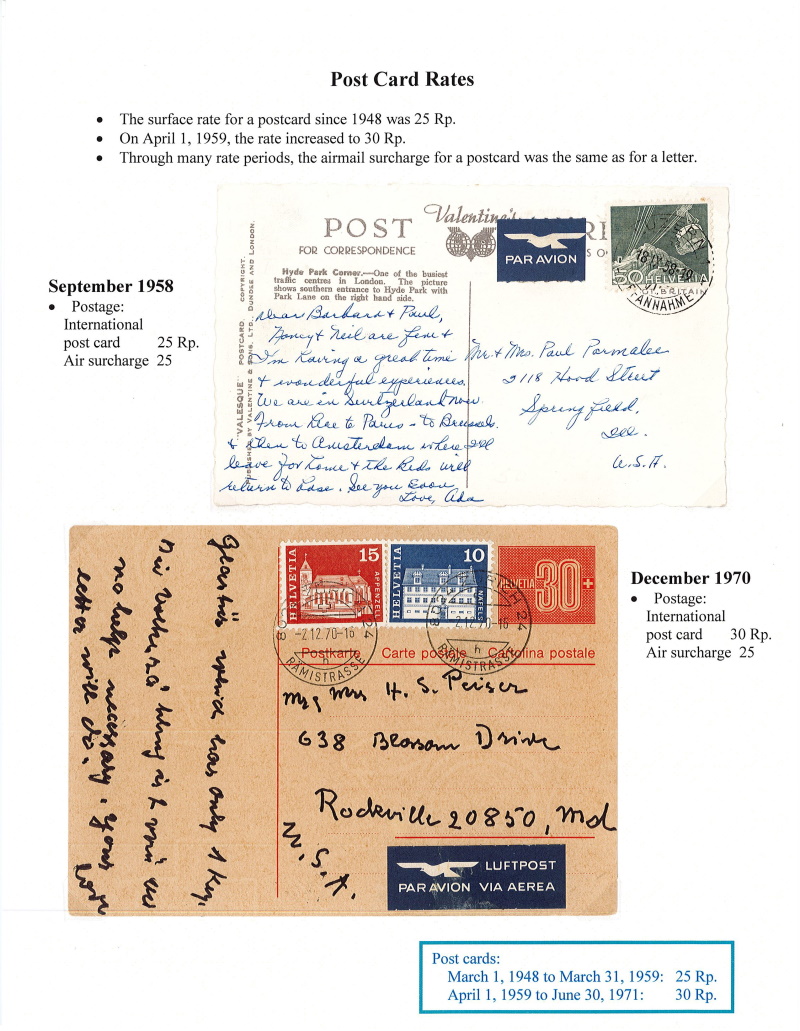 Post Card Rates
• The surface rate for a postcard since 1948 was 25 Rp.
• On April 1, 1959, the rate increased to 30 Rp.
• Through many rate periods, the airmail surcharge for a postcard was the same as for a letter.
September 1958
• Postage:
International
post card 25 Rp.
Air surcharge 25
POST
Valentine's
FOR CORRESPONDENCE
Hyde Park Corner.—One of the busiest
traffic centres in London. The picture
shows southern entrance to Hyde Park with
Park Lane on the right hand side.
"VALESQUE" POSTCARD. COPYRIGHT.
PUBLISHED BY VALENTINE & SONS, LTD., DUNDEE AND LONDON.
PAR AVION
50 HELVETIA
BRITAIN
Dear Barbara & Paul,
Nancy & Neil are fine &
I'm having a great time
& wonderful experiences.
We are in Switzerland now.
From here to Paris - to Brussels
& then to Amsterdam where I'll
leave for home & the kids will
return to base. See you soon
Love, Ada
Mr. & Mrs. Paul Parmalee
2118 Hood Street
Springfield,
Ill.
U.S.A.
HELVETIA 15 APPENZELL
HELVETIA 10 NÄFELS
HELVETIA 30
-2.12.70-16
RÄMISTRASSE
2.12.70-16
RÄMISTRASSE
Postkarte Carte postale Cartolina postale
H. S. Peiser
638 Blossom Drive
Rockville 20850, Md
U.S.A.
only
necessary. your
letter will do.
LUFTPOST
PAR AVION VIA AEREA
December 1970
• Postage:
International
post card 30 Rp.
Air surcharge 25
Post cards:
March 1, 1948 to March 31, 1959: 25 Rp.
April 1, 1959 to June 30, 1971: 30 Rp.